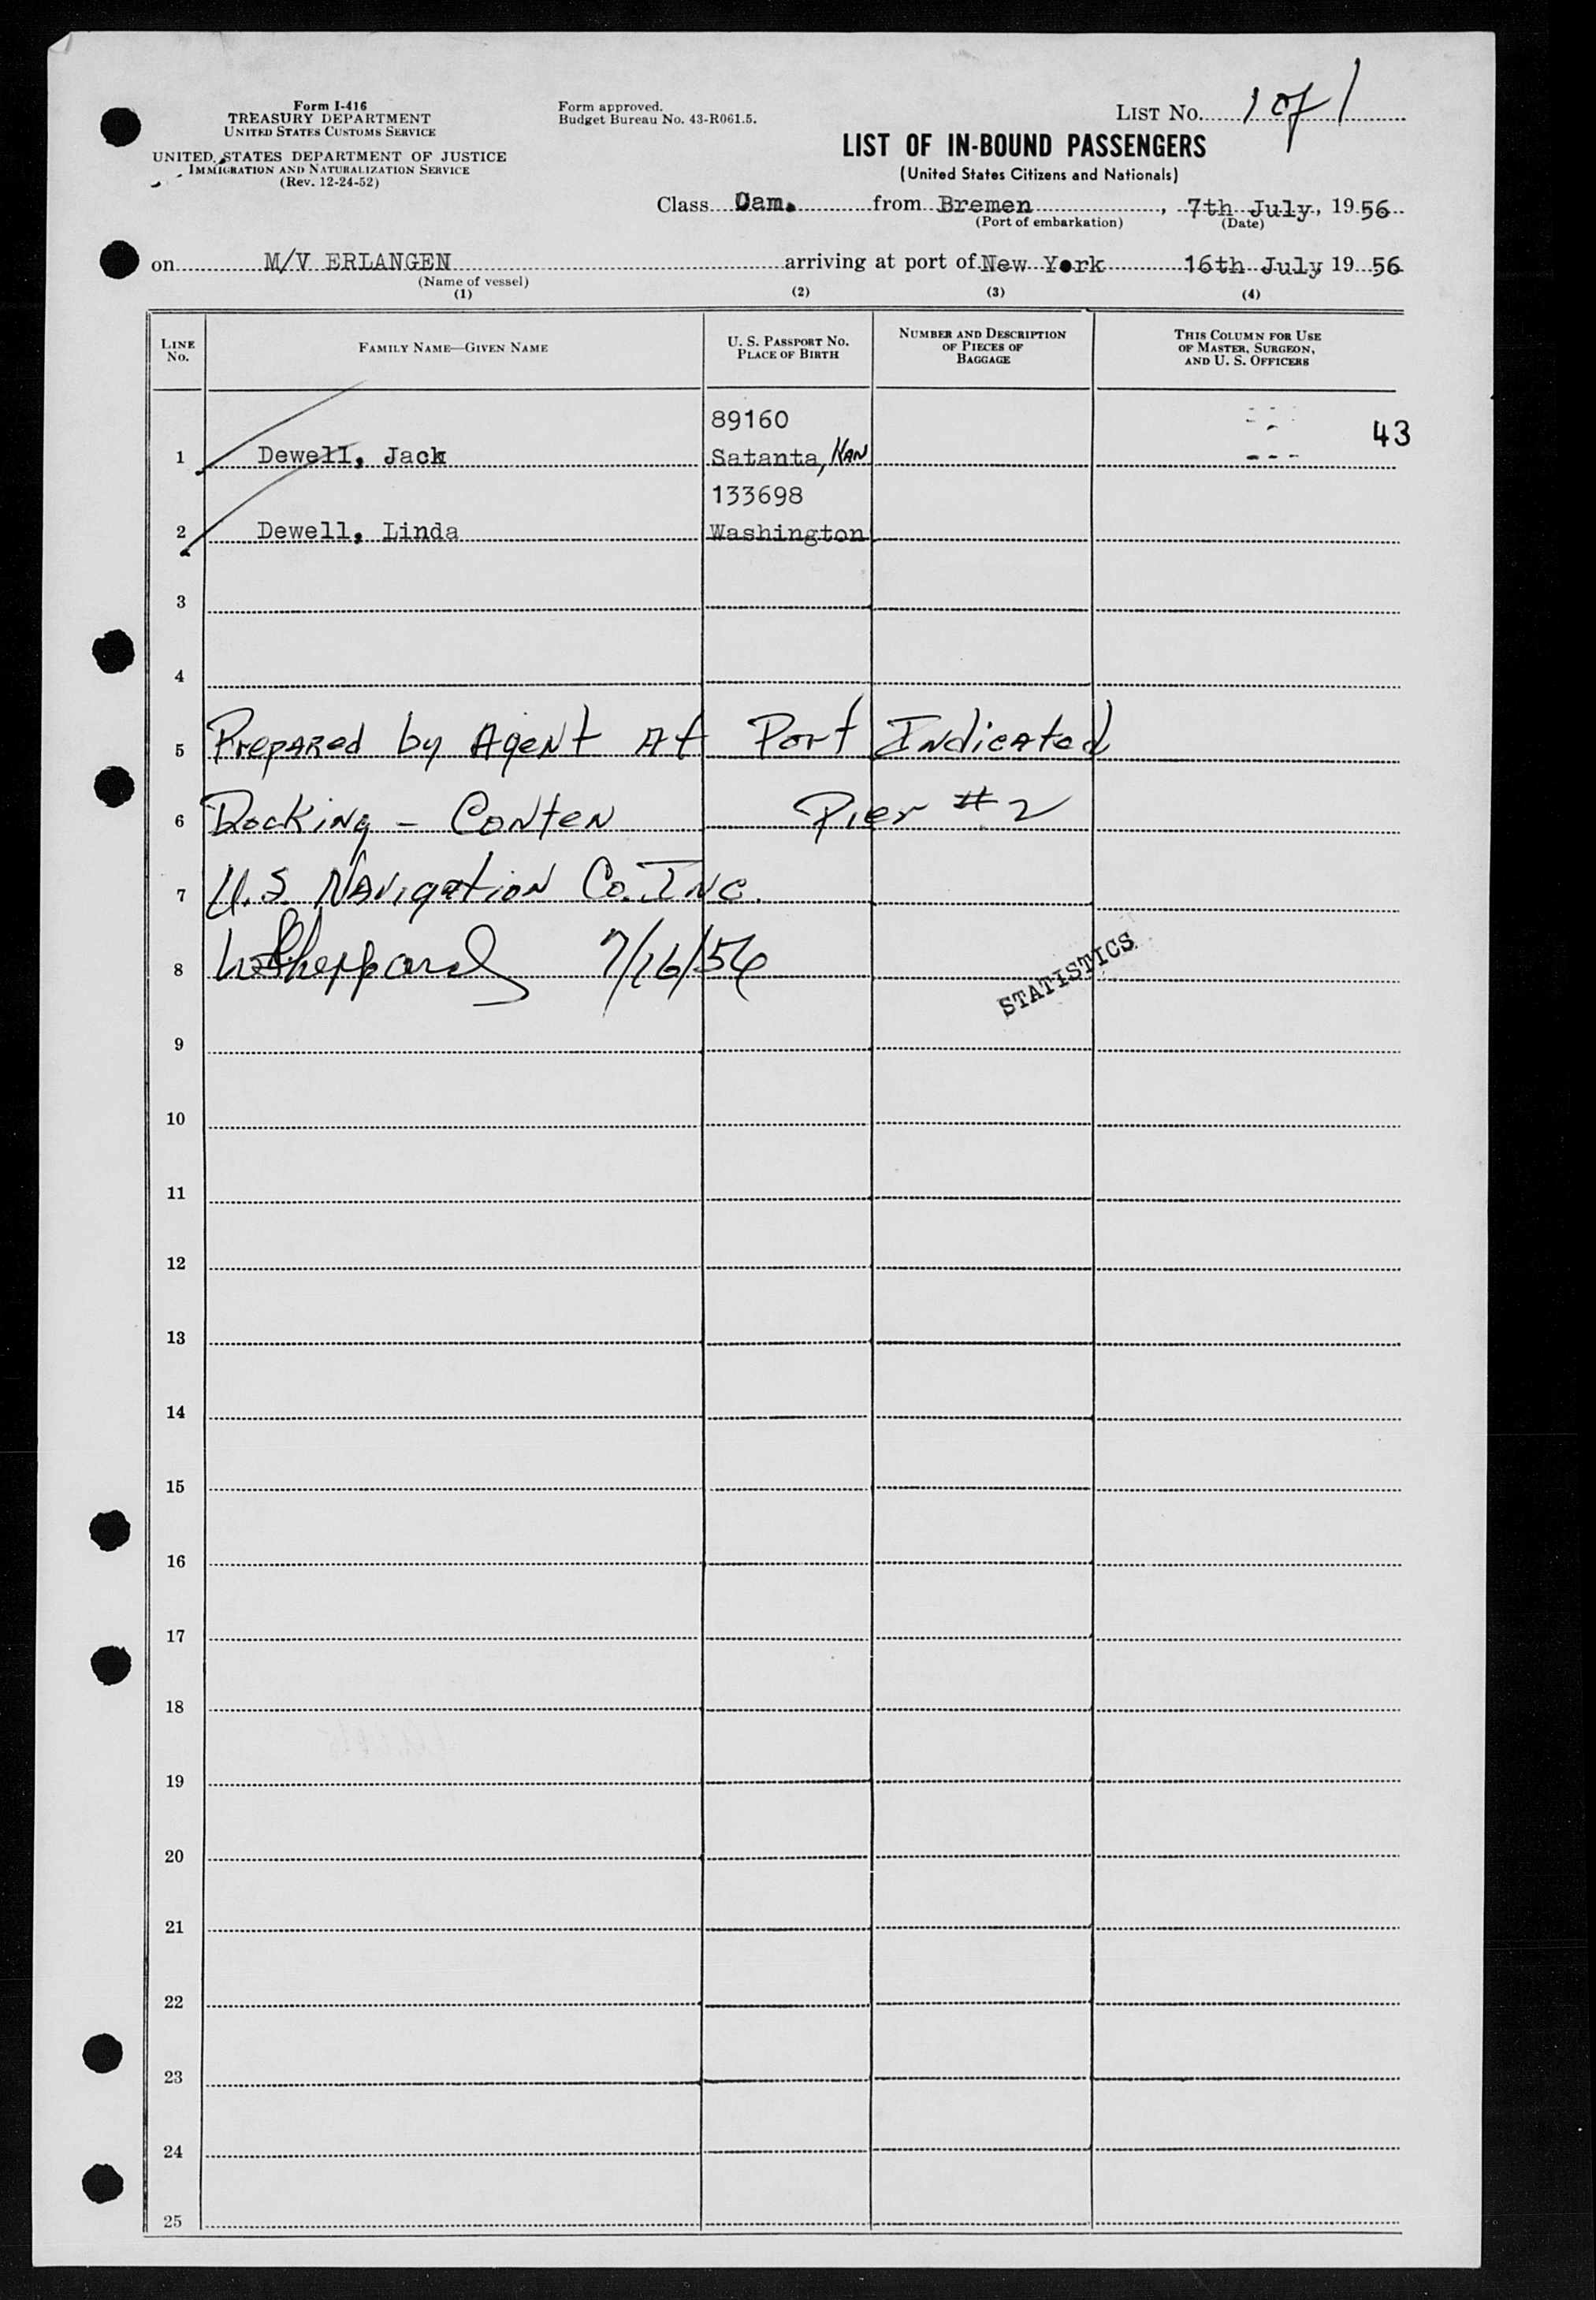 Form I-416
TREASURY DEPARTMENT
UNITED STATES CUSTOMS SERVICE
UNITED STATES DEPARTMENT OF JUSTICE
IMMIGRATION AND NATURALIZATION SERVICE
(Rev. 12-24-52)
Form approved.
Budget Bureau No. 43-R061.5.
LIST No. 1 of 1
LIST OF IN-BOUND PASSENGERS
(United States Citizens and Nationals)
Class Cam. from Bremen, 7th July, 1956
(Port of embarkation) (Date)
on M/V ERLANGEN arriving at port of New York 16th July, 1956
(Name of vessel)
(1) (2) (3) (4)
LINE No. FAMILY NAME—GIVEN NAME U. S. PASSPORT No. PLACE OF BIRTH NUMBER AND DESCRIPTION OF PIECES OF BAGGAGE THIS COLUMN FOR USE OF MASTER, SURGEON, AND U. S. OFFICERS
89160
43
1 Dewell, Jack Satanta, KAN
133698
2 Dewell, Linda Washington
3
4
5 Prepared by Agent At Port Indicated
6 Docking - Conten Pier #2
7 U.S. Navigation Co. Inc.
8 Sheppard 7/16/56
STATISTICS
9
10
11
12
13
14
15
16
17
18
19
20
21
22
23
24
25